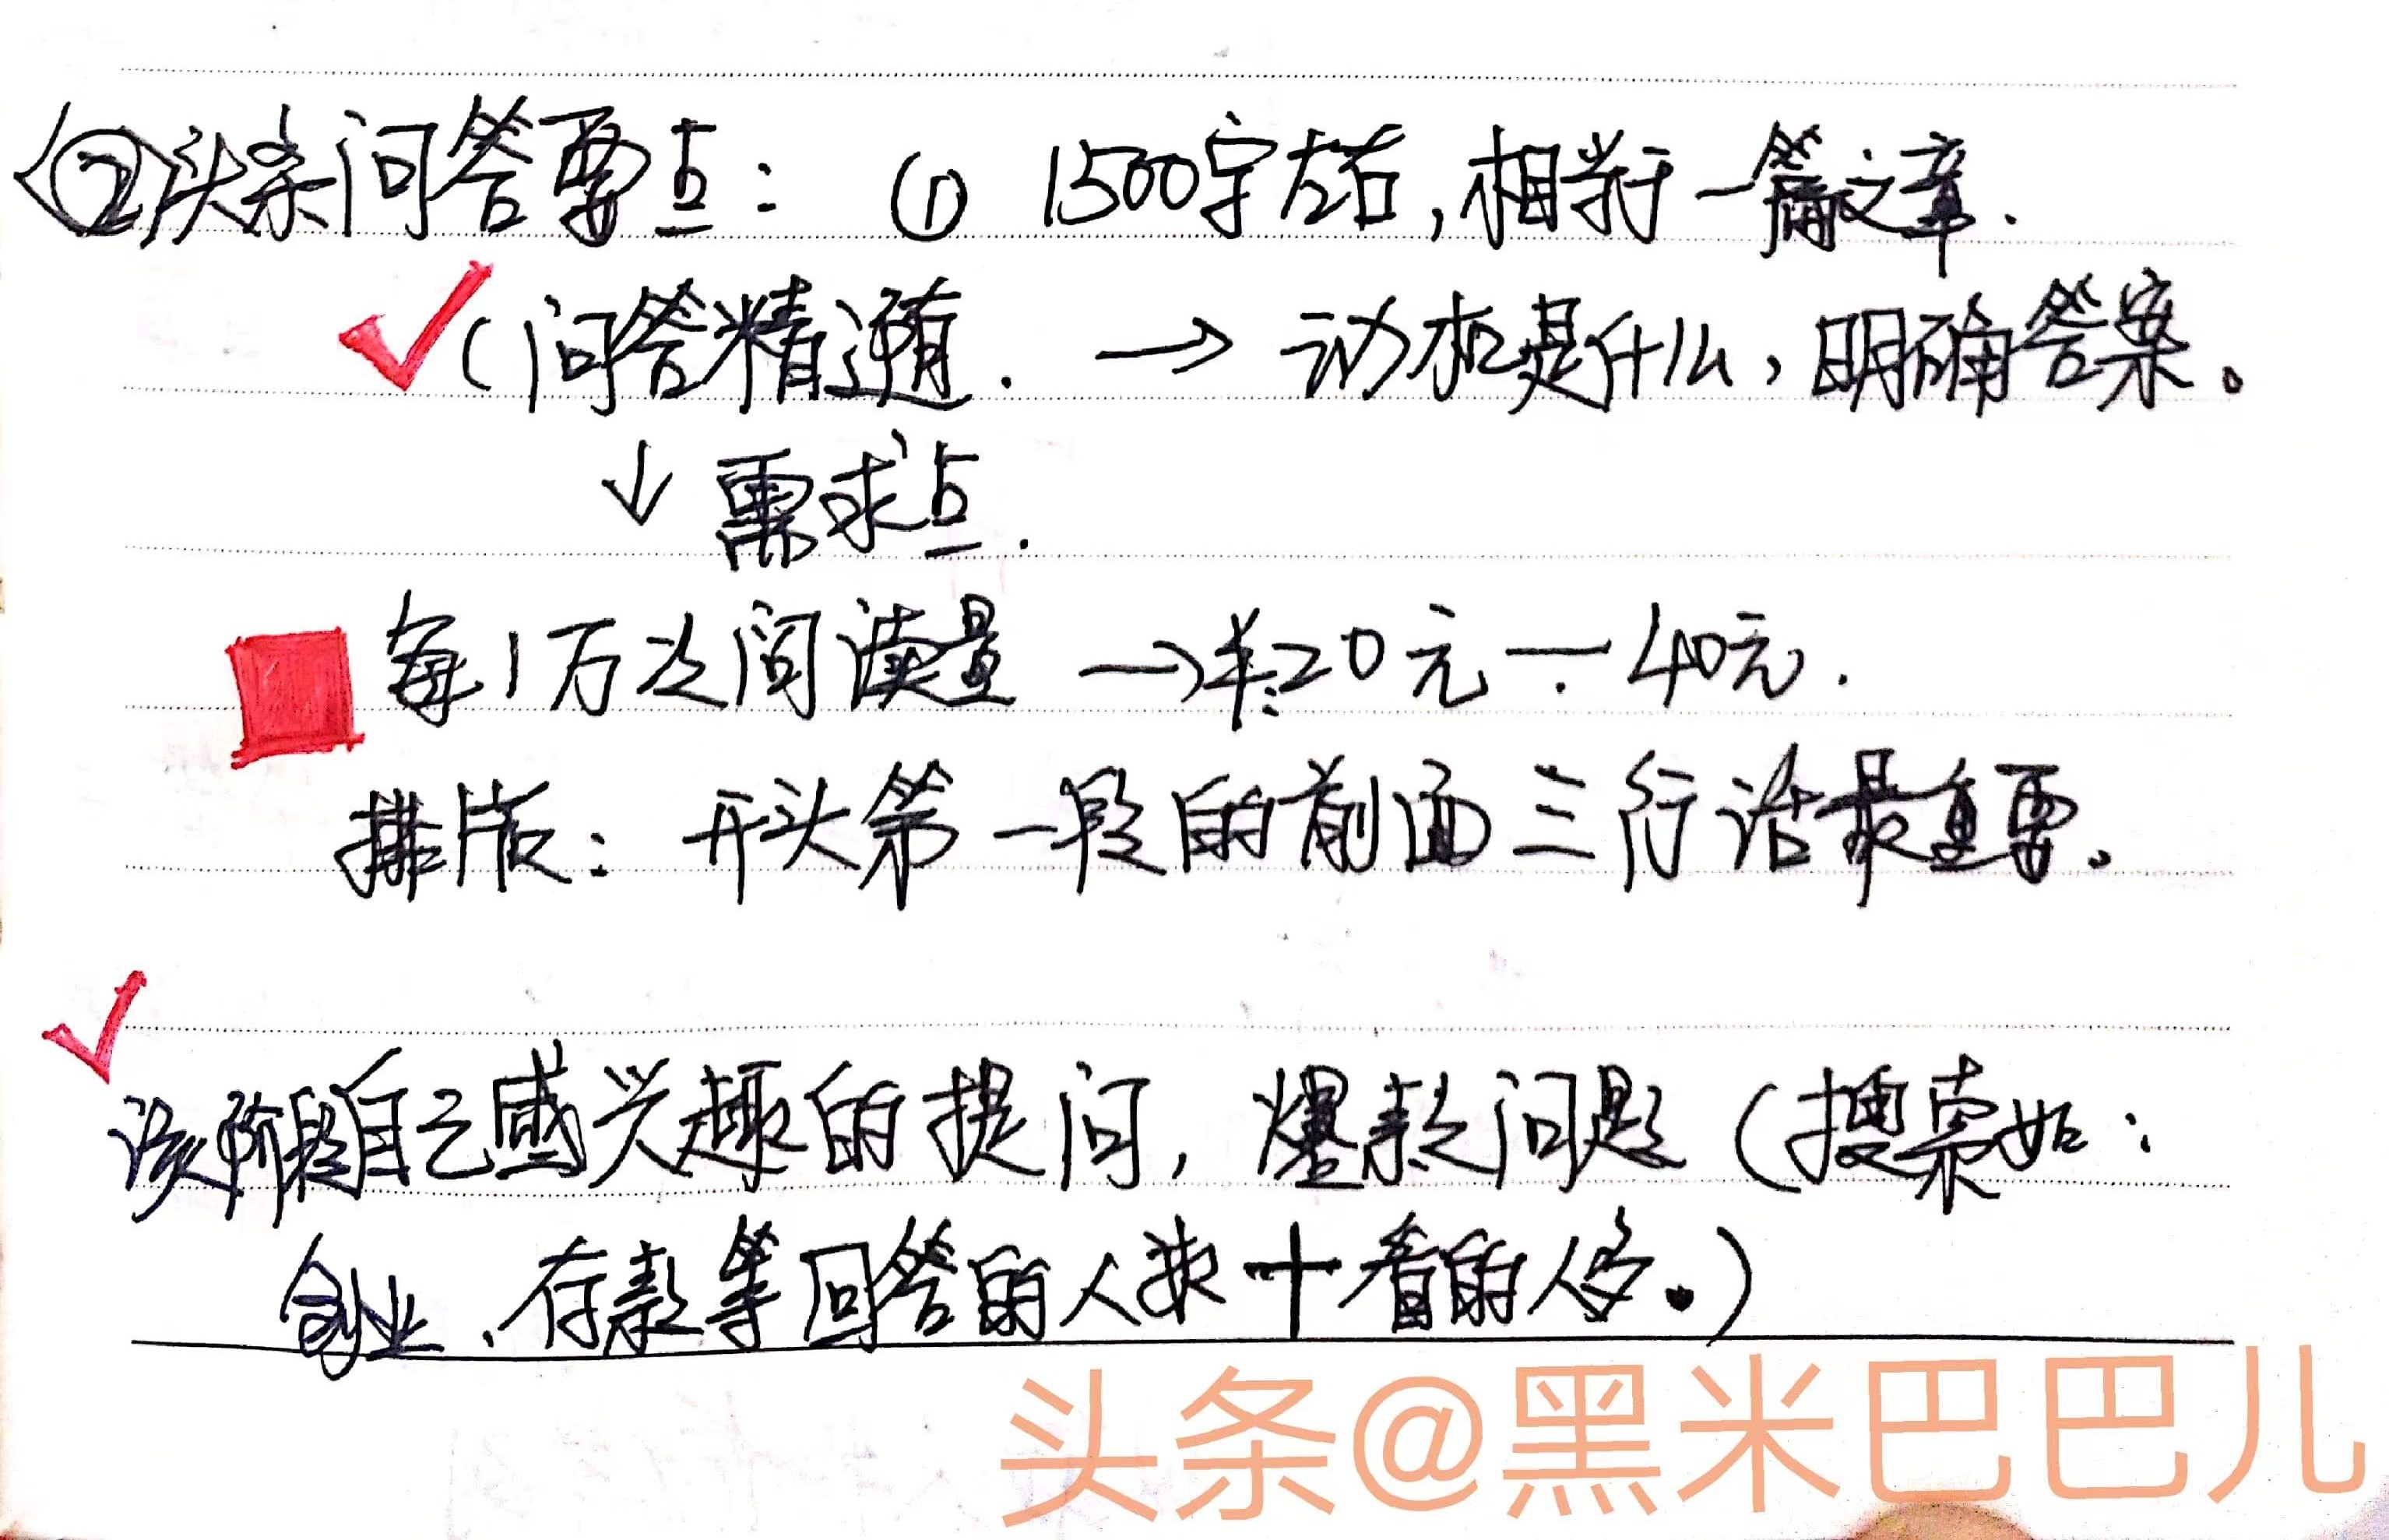 ②头条问答要点: ① 1500字左右,相当于一篇文章.
(问答精选有. → 动机是什么,明确答案。
↓ 需求点.
每1万次阅读量 → 20元 — 40元.
排版: 开头第一段的前面三行话最重要。
该阶段自己感兴趣的提问, 爆款问题 (搜索如:
创业、存款等回答的人数+看的人多.)
头条@黑米巴巴儿